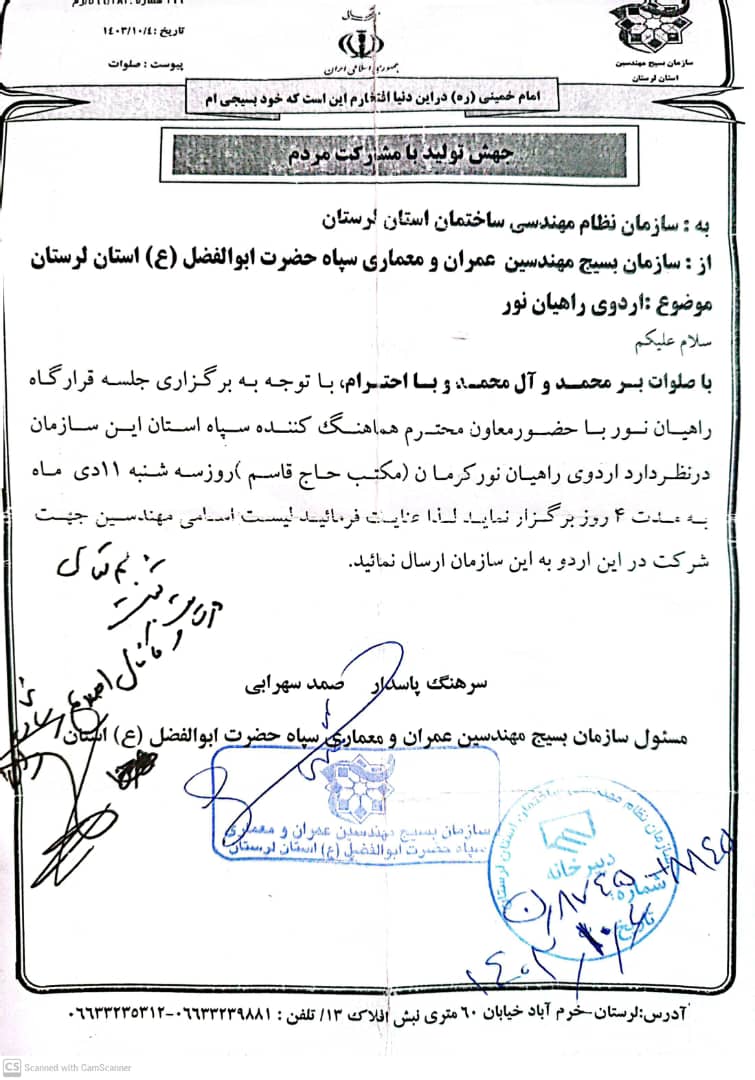 بسمه تعالی
جمهوری اسلامی ایران
تاریخ : ۱۴۰۳/۱۰/۴
پیوست : صلوات
سازمان بسیج مهندسین
استان لرستان
امام خمینی (ره) دراین دنیا افتخارم این است که خود بسیجی ام
جهش تولید با مشارکت مردم
به : سازمان نظام مهندسی ساختمان استان لرستان
از : سازمان بسیج مهندسین عمران و معماری سپاه حضرت ابوالفضل (ع) استان لرستان
موضوع :اردوی راهیان نور
سلام علیکم
با صلوات بر محمد و آل محمد و با احترام، با توجه به برگزاری جلسه قرارگاه
راهیان نور با حضورمعاون محترم هماهنگ کننده سپاه استان این سازمان
درنظردارد اردوی راهیان نورکرمان (مکتب حاج قاسم )روزسه شنبه ۱۱دی ماه
به مدت ۴ روز برگزار نماید لذا عنایت فرمائید لیست اسامی مهندسین جهت
شرکت در این اردو به این سازمان ارسال نمائید.
سرهنگ پاسدار صمد سهرابی
مسئول سازمان بسیج مهندسین عمران و معماری سپاه حضرت ابوالفضل (ع) استان
سازمان بسیج مهندسین عمران و معماری
سپاه حضرت ابوالفضل (ع) استان لرستان
سازمان نظام مهندسی ساختمان استان لرستان
دبیرخانه
شماره:
تاریخ:
آدرس:لرستان-خرم آباد خیابان ۶۰ متری نبش افلاک ۱۳/ تلفن : ۰۶۶۳۳۲۳۹۸۸۱-۰۶۶۳۳۲۳۵۳۱۲
CS Scanned with CamScanner